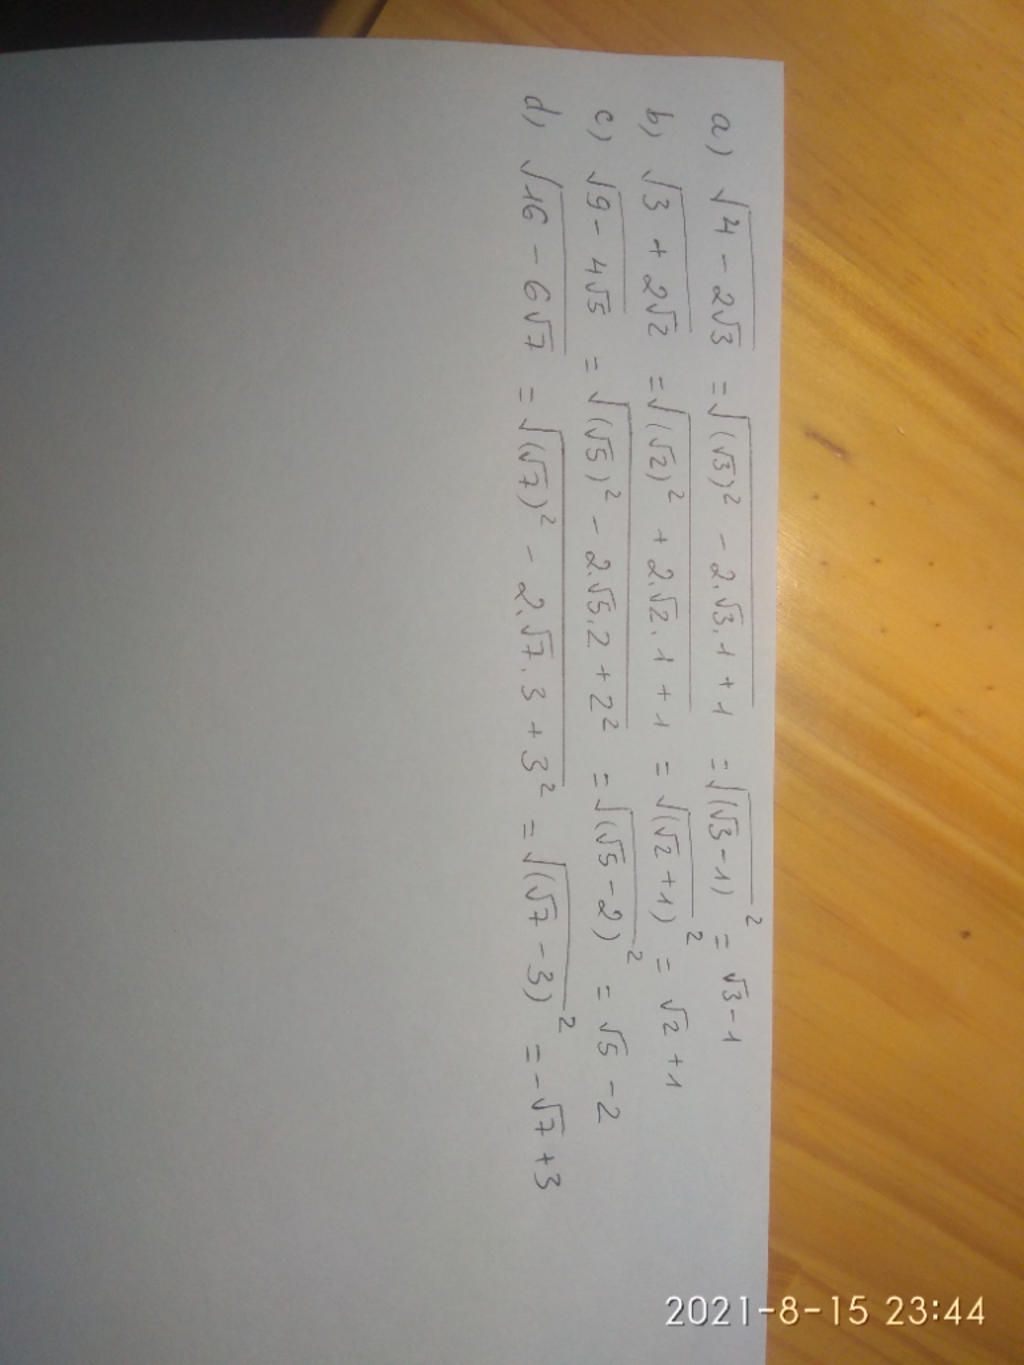 a) √4 - 2√3 = √(√3)² - 2.√3.1 + 1 = √(√3-1)² = √3-1
b) √3 + 2√2 = √(√2)² + 2.√2.1 + 1 = √(√2+1)² = √2 +1
c) √9 - 4√5 = √(√5)² - 2.√5.2 + 2² = √(√5-2)² = √5 -2
d) √16 - 6√7 = √(√7)² - 2.√7.3 + 3² = √(√7-3)² = -√7+3
2021-8-15 23:44